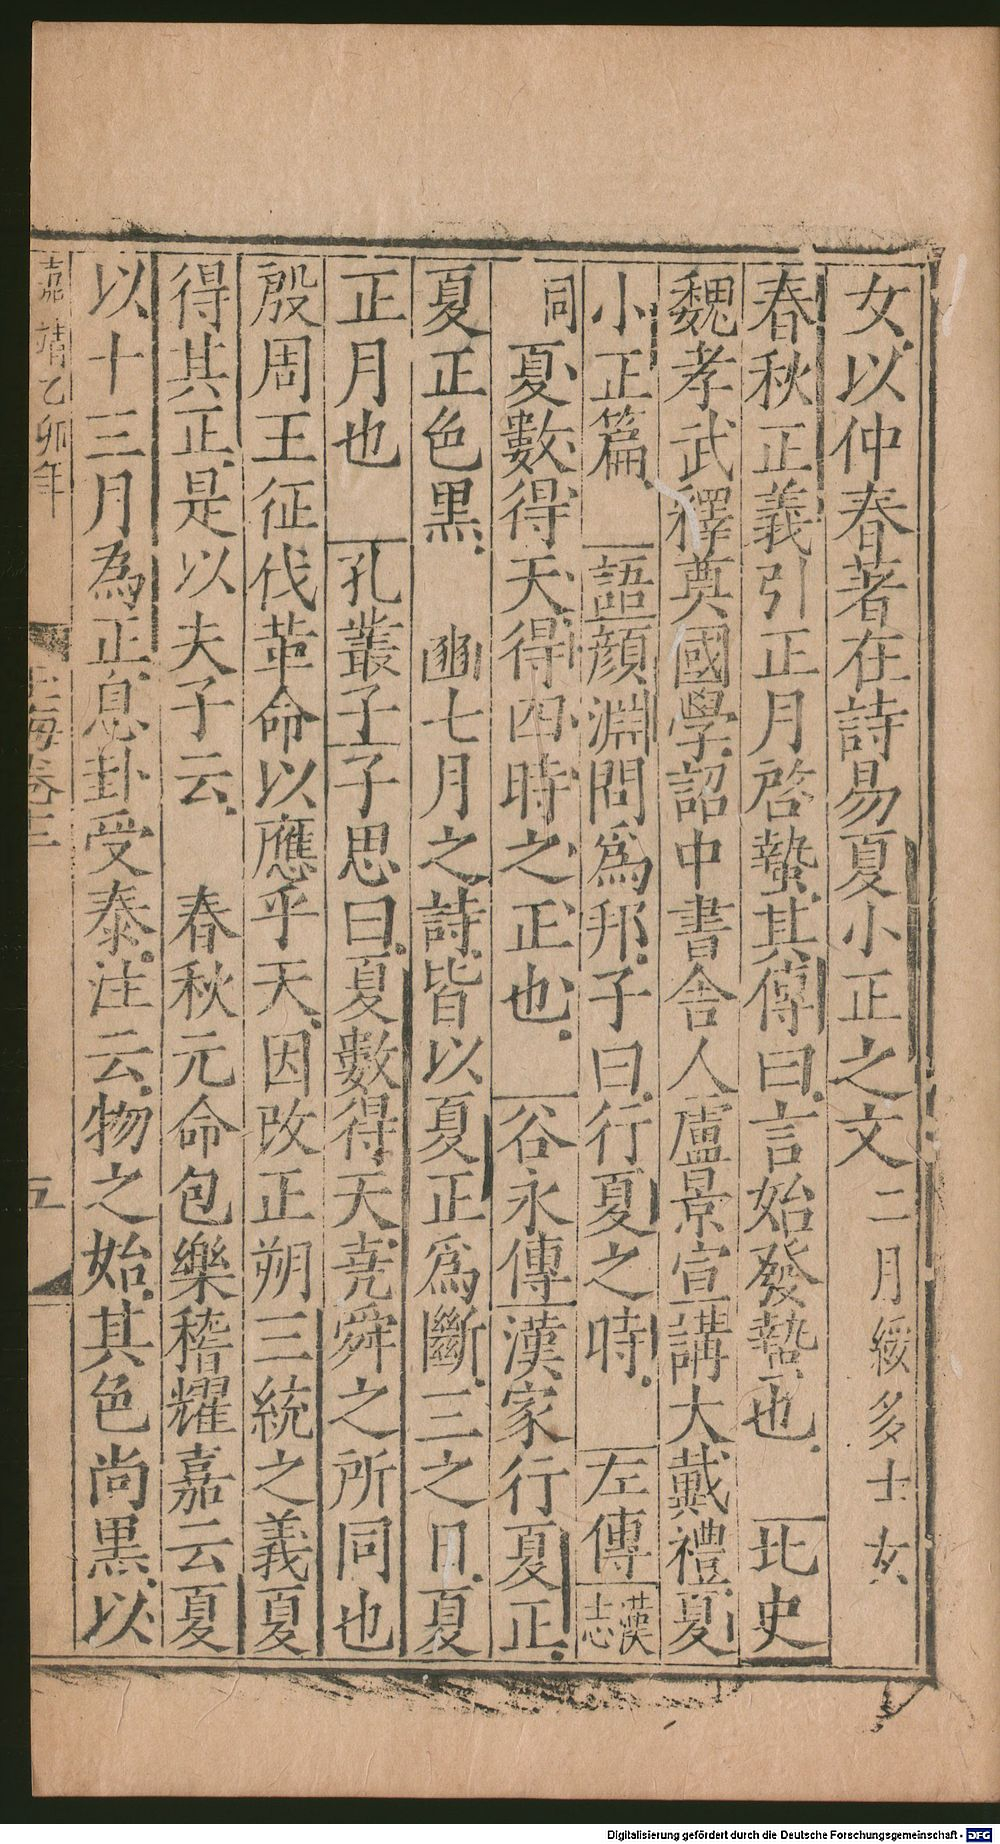 女以仲春著在詩易夏小正之文二月綏多士女
春秋正義引正月啓蟄其傳曰言始發蟄也　北史
魏孝武釋奠國學詔中書舍人盧景宣講大戴禮夏
小正篇　語顔淵問爲邦子曰行夏之時　左傳漢志
同夏數得天得四時之正也　谷永傳漢家行夏正
夏正色黑　豳七月之詩皆以夏正爲斷三之日夏
正月也　孔叢子子思曰夏數得天堯舜之所同也
殷周王征伐革命以應乎天因改正朔三統之義夏
得其正是以夫子云　春秋元命包樂稽耀嘉云夏
以十三月為正息卦受泰注云物之始其色尚黑以
嘉靖乙卯年
玉海卷三
五
Digitalisierung gefördert durch die Deutsche Forschungsgemeinschaft - DFG